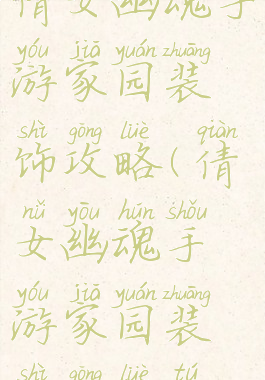 倩女幽魂手
yóu jiā yuán zhuāng
游家园装
shì gōng lüè qiàn
饰攻略(倩
nǚ yōu hún shǒu
女幽魂手
yóu jiā yuán zhuāng
游家园装
shì gōng lüè tú